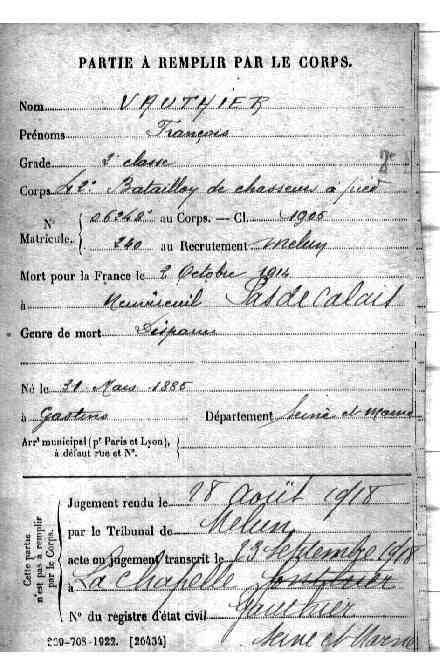 PARTIE À REMPLIR PAR LE CORPS.
Nom VAUTHIER
Prénoms François
Grade 2e classe
Corps 42e Bataillon de chasseurs à pied
N° Matricule. 06240 au Corps. — Cl. 1905
240 au Recrutement Melun
Mort pour la France le 2 Octobre 1914
à Neuvireuil Pas de Calais
Genre de mort Disparu
Né le 31 Mars 1885
à Gastins Département Seine et Marne
Arrt municipal (pr Paris et Lyon),
à défaut rue et N°.
Cette partie n'est pas à remplir par le Corps.
Jugement rendu le 28 Août 1918
par le Tribunal de Melun
acte ou jugement transcrit le 23 Septembre 1918
à La Chapelle
N° du registre d'état civil Gauthier
Seine et Marne
239-708-1922. [26434]